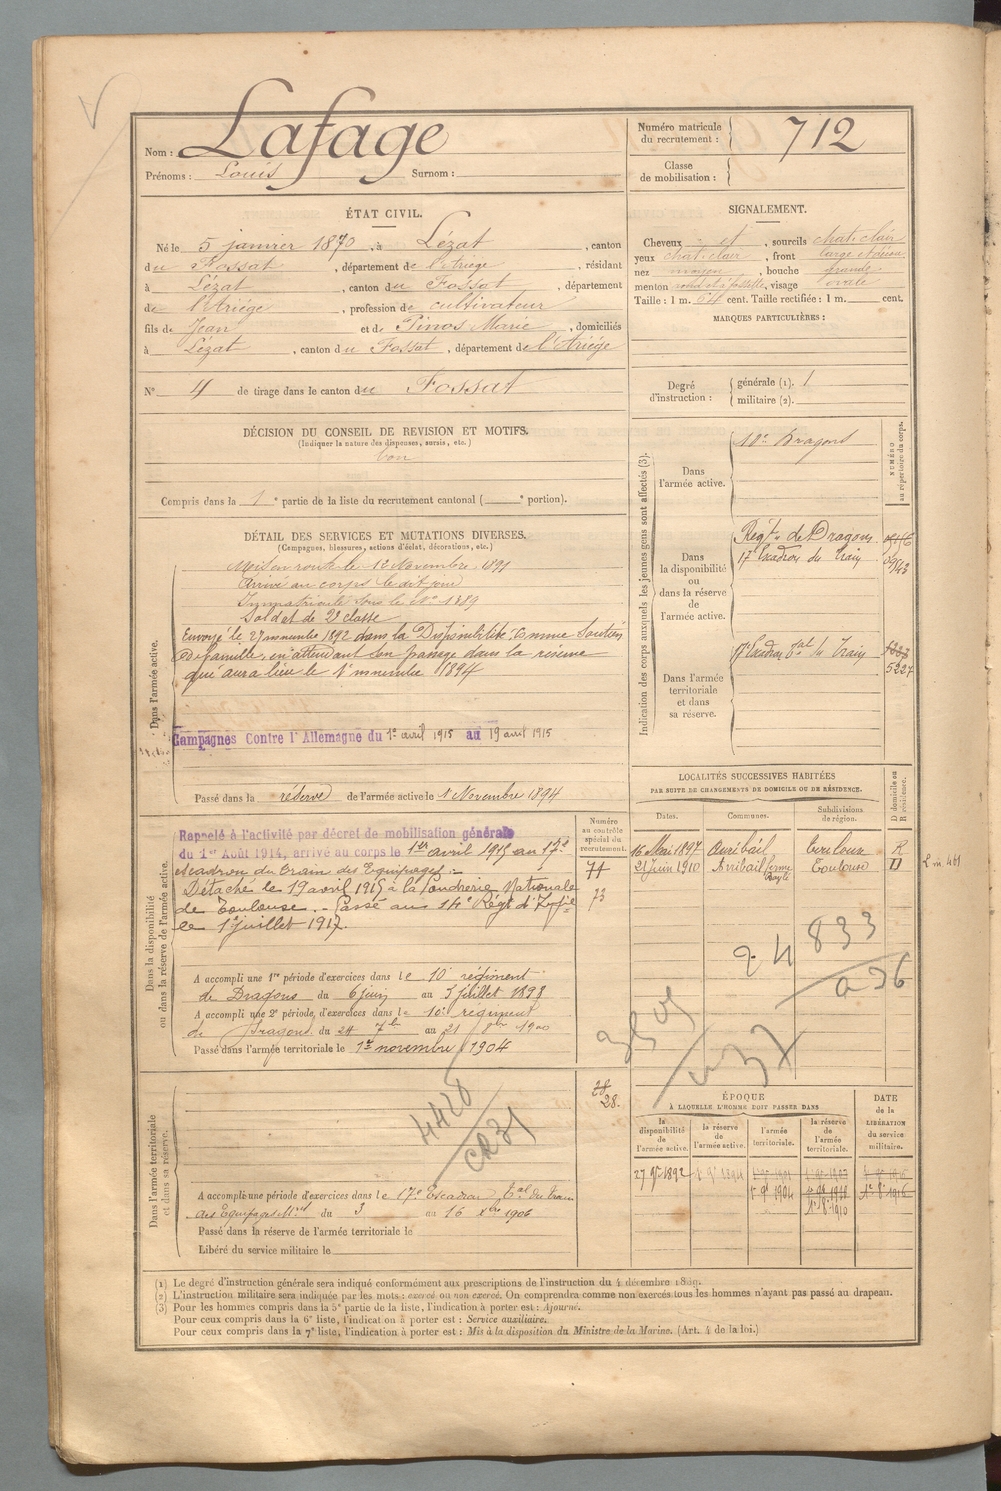 Nom : Lafage
Prénoms : Louis Surnom :
Numéro matricule du recrutement : 712
Classe de mobilisation :
ÉTAT CIVIL.
Né le 5 janvier 1870, à Lézat, canton
du Fossat, département de l'Ariège, résidant
à Lézat, canton du Fossat, département
de l'Ariège, profession de cultivateur
fils de Jean et de Pinos Marie, domiciliés
à Lézat, canton du Fossat, département de l'Ariège
N° 4 de tirage dans le canton du Fossat
SIGNALEMENT.
Cheveux et, sourcils chat. clair
yeux chat. clair, front large
nez moyen, bouche grande
menton rond et à fossette, visage ovale
Taille : 1 m. cent. Taille rectifiée : 1 m. cent.
MARQUES PARTICULIÈRES :
Degré d'instruction : générale (1). 1
militaire (2).
DÉCISION DU CONSEIL DE REVISION ET MOTIFS.
(Indiquer la nature des dispenses, sursis, etc.)
bon
Compris dans la 1e partie de la liste du recrutement cantonal ( e portion).
DÉTAIL DES SERVICES ET MUTATIONS DIVERSES.
(Campagnes, blessures, actions d'éclat, décorations, etc.)
Dans l'armée active.
Mis en route le 12 Novembre 1891
Arrivé au corps le dit jour
Immatriculé sous le N° 1889
Soldat de 2e classe
Envoyé le 27 novembre 1892 dans la Disponibilité comme soutien
de famille, en attendant son passage dans la réserve
qui aura lieu le 1er novembre 1894
Campagnes Contre l'Allemagne du 1er avril 1915 au 19 avril 1915
Passé dans la réserve de l'armée active le 1 Novembre 1894
Indication des corps auxquels les jeunes gens sont affectés (3).
NUMÉRO au répertoire du corps.
Dans l'armée active.
10e Dragons
Dans la disponibilité ou dans la réserve de l'armée active.
Régt de Dragons
17e Escadron du Train
Dans l'armée territoriale et dans sa réserve.
17e Escadron tal du Train
5227
LOCALITÉS SUCCESSIVES HABITÉES
PAR SUITE DE CHANGEMENTS DE DOMICILE OU DE RÉSIDENCE.
Dates. Communes. Subdivisions de région. D domicile ou R résidence.
16 Mai 1897 Auribail Toulouse R
21 Juin 1910 Auribail ferme Toulouse D
Numéro au contrôle spécial du recrutement.
71
73
Dans la disponibilité ou dans la réserve de l'armée active.
Rappelé à l'activité par décret de mobilisation générale
du 1er Août 1914, arrivé au corps le 1er avril 1915 au 17e
escadron du train des Equipages.
Détaché le 19 avril 1915 à la fondrerie Nationale
de Toulouse. - Passé au 14e Régt d'Infie
le 1er juillet 1917.
A accompli une 1re période d'exercices dans le 10e régiment
de Dragons du 6 juin au 3 Juillet 1898
A accompli une 2e période d'exercices dans le 10e régiment
de Dragons du 24 7bre au 21 8bre 1900
Passé dans l'armée territoriale le 1er novembre 1904
833
a 36
4420
28.
Dans l'armée territoriale et dans sa réserve.
A accompli une période d'exercices dans le 17e Escadron tal du Train
des Equipages Mres du 3 au 16 Xbre 1906
Passé dans la réserve de l'armée territoriale le
Libéré du service militaire le
ÉPOQUE
À LAQUELLE L'HOMME DOIT PASSER DANS
la disponibilité de l'armée active.
la réserve de l'armée active.
l'armée territoriale.
la réserve de l'armée territoriale.
DATE de la LIBÉRATION du service militaire.
27 9bre 1892 1er 9bre 1894
1er 9bre 1904
1er 8bre 1910
1er 8bre 1916
(1) Le degré d'instruction générale sera indiqué conformément aux prescriptions de l'instruction du 4 décembre 1889.
(2) L'instruction militaire sera indiquée par les mots : exercé ou non exercé. On comprendra comme non exercés tous les hommes n'ayant pas passé au drapeau.
(3) Pour les hommes compris dans la 5e partie de la liste, l'indication à porter est : Ajourné.
Pour ceux compris dans la 6e liste, l'indication à porter est : Service auxiliaire.
Pour ceux compris dans la 7e liste, l'indication à porter est : Mis à la disposition du Ministre de la Marine. (Art. 4 de la loi.)